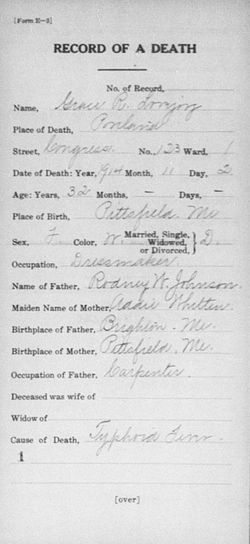 [Form E—3]
RECORD OF A DEATH
No. of Record,
Name, Grace R. Lovejoy
Place of Death, Portland
Street, Congress No. 123 Ward, 1
Date of Death: Year, 1914 Month, 11 Day, 2
Age: Years, 32 Months, – Days, –
Place of Birth, Pittsfield, Me
Sex, F. Color, W. Married, Single, Widowed, or Divorced, } D.
Occupation, Dressmaker
Name of Father, Rodney W. Johnson
Maiden Name of Mother, Addie Whitten
Birthplace of Father, Brighton. Me.
Birthplace of Mother, Pittsfield. Me.
Occupation of Father, Carpenter
Deceased was wife of
Widow of
Cause of Death, Typhoid
1
[over]